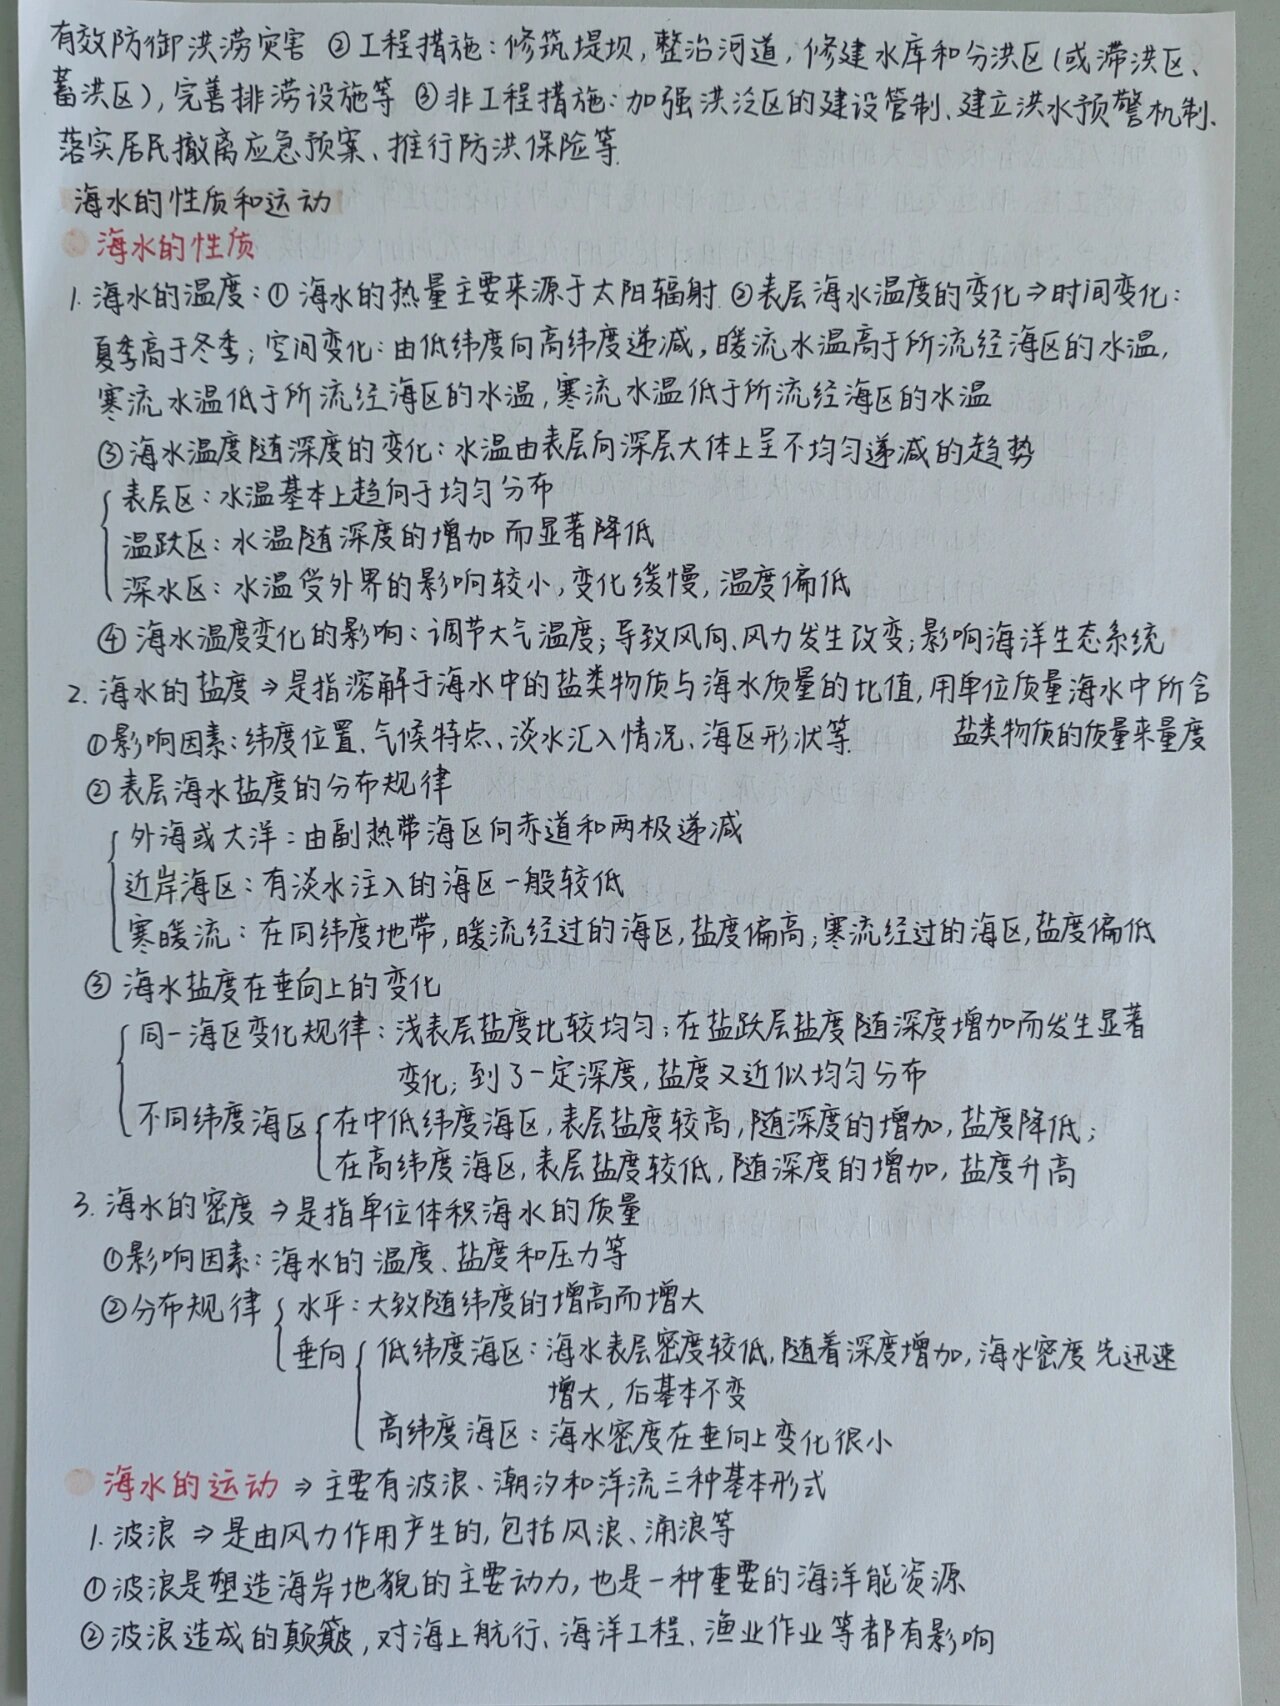 有效防御洪涝灾害 ②工程措施：修筑堤坝，整治河道，修建水库和分洪区（或滞洪区、
蓄洪区），完善排涝设施等 ③非工程措施：加强洪泛区的建设管制、建立洪水预警机制、
落实居民撤离应急预案、推行防洪保险等.
海水的性质和运动
海水的性质
1. 海水的温度：①海水的热量主要来源于太阳辐射 ②表层海水温度的变化⇒时间变化：
夏季高于冬季；空间变化：由低纬度向高纬度递减，暖流水温高于所流经海区的水温，
寒流水温低于所流经海区的水温，寒流水温低于所流经海区的水温
③海水温度随深度的变化：水温由表层向深层大体上呈不均匀递减的趋势
表层区：水温基本上趋向于均匀分布
温跃区：水温随深度的增加而显著降低
深水区：水温受外界的影响较小，变化缓慢，温度偏低
④海水温度变化的影响：调节大气温度；导致风向、风力发生改变；影响海洋生态系统
2. 海水的盐度⇒是指溶解于海水中的盐类物质与海水质量的比值，用单位质量海水中所含
①影响因素：纬度位置、气候特点、淡水汇入情况、海区形状等. 盐类物质的质量来量度
②表层海水盐度的分布规律
外海或大洋：由副热带海区向赤道和两极递减
近岸海区：有淡水注入的海区一般较低
寒暖流：在同纬度地带，暖流经过的海区，盐度偏高；寒流经过的海区，盐度偏低
③海水盐度在垂向上的变化
同一海区变化规律：浅表层盐度比较均匀；在盐跃层盐度随深度增加而发生显著
变化；到了一定深度，盐度又近似均匀分布
不同纬度海区 在中低纬度海区，表层盐度较高，随深度的增加，盐度降低；
在高纬度海区，表层盐度较低，随深度的增加，盐度升高
3. 海水的密度⇒是指单位体积海水的质量
①影响因素：海水的温度、盐度和压力等
②分布规律 水平：大致随纬度的增高而增大
垂向 低纬度海区：海水表层密度较低，随着深度增加，海水密度先迅速
增大，后基本不变
高纬度海区：海水密度在垂向上变化很小
海水的运动⇒主要有波浪、潮汐和洋流三种基本形式
1. 波浪⇒是由风力作用产生的，包括风浪、涌浪等
①波浪是塑造海岸地貌的主要动力，也是一种重要的海洋能资源
②波浪造成的颠簸，对海上航行、海洋工程、渔业作业等都有影响